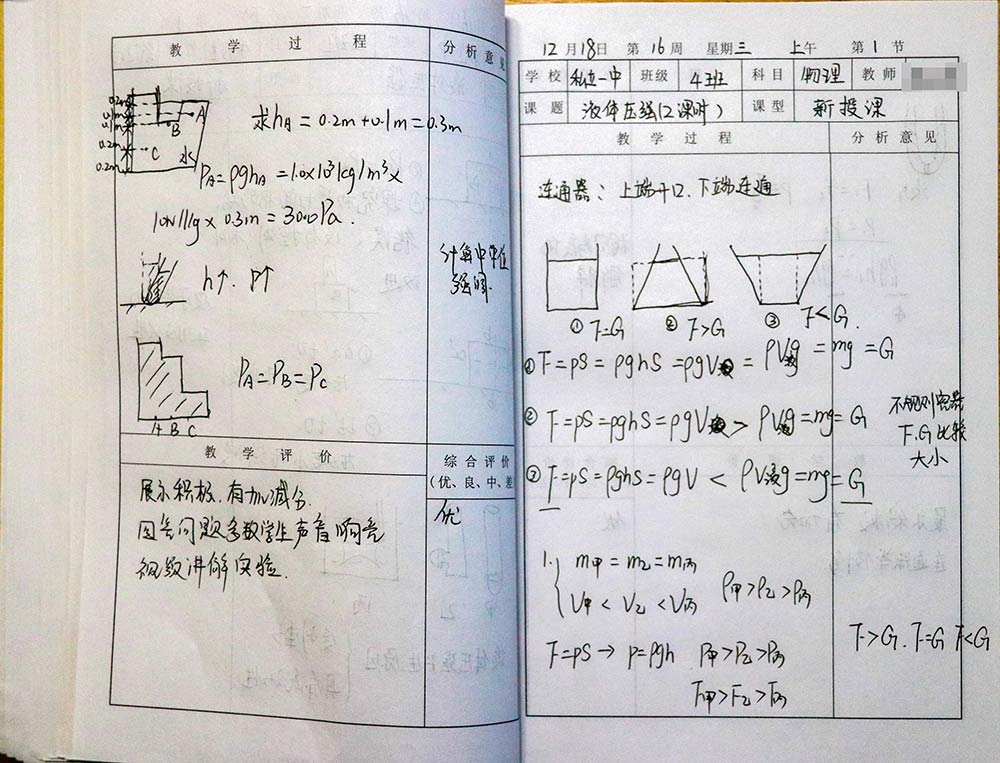 教 学 过 程
分析意见
0.2m
0.1m
0.1m
0.2m
0.2m
A
B
C
水
求hA = 0.2m+0.1m=0.3m
PA=ρghA =1.0x10³kg/m³x
10N/kg x 0.3m = 3000Pa.
h↑. P↑
计算中单位
强调.
PA=PB=PC
A B C
教 学 评 价
综合评价
(优、良、中、差
展示积极.有加减分.
回答问题多数学生声音响亮
视频讲解实验.
优
12月18日 第16周 星期三 上午 第1节
学校 私立一中 班级 4班 科目 物理 教师
课题 液体压强(2课时) 课型 新授课
教 学 过 程
分析意见
连通器: 上端开口、下端连通
① F=G
② F>G
③ F<G.
① F=pS=ρghS=ρgV液=ρV液g=mg=G
② F=pS=ρghS=ρgV液>ρV液g=mg=G
③ F=pS=ρghS=ρgV<ρV液g=mg=G
不规则容器
F.G比较
大小
1. m甲=m乙=m丙
V甲<V乙<V丙
ρ甲>ρ乙>ρ丙
F=pS→p=ρgh P甲>P乙>P丙
F甲>F乙>F丙
F>G. F=G F<G